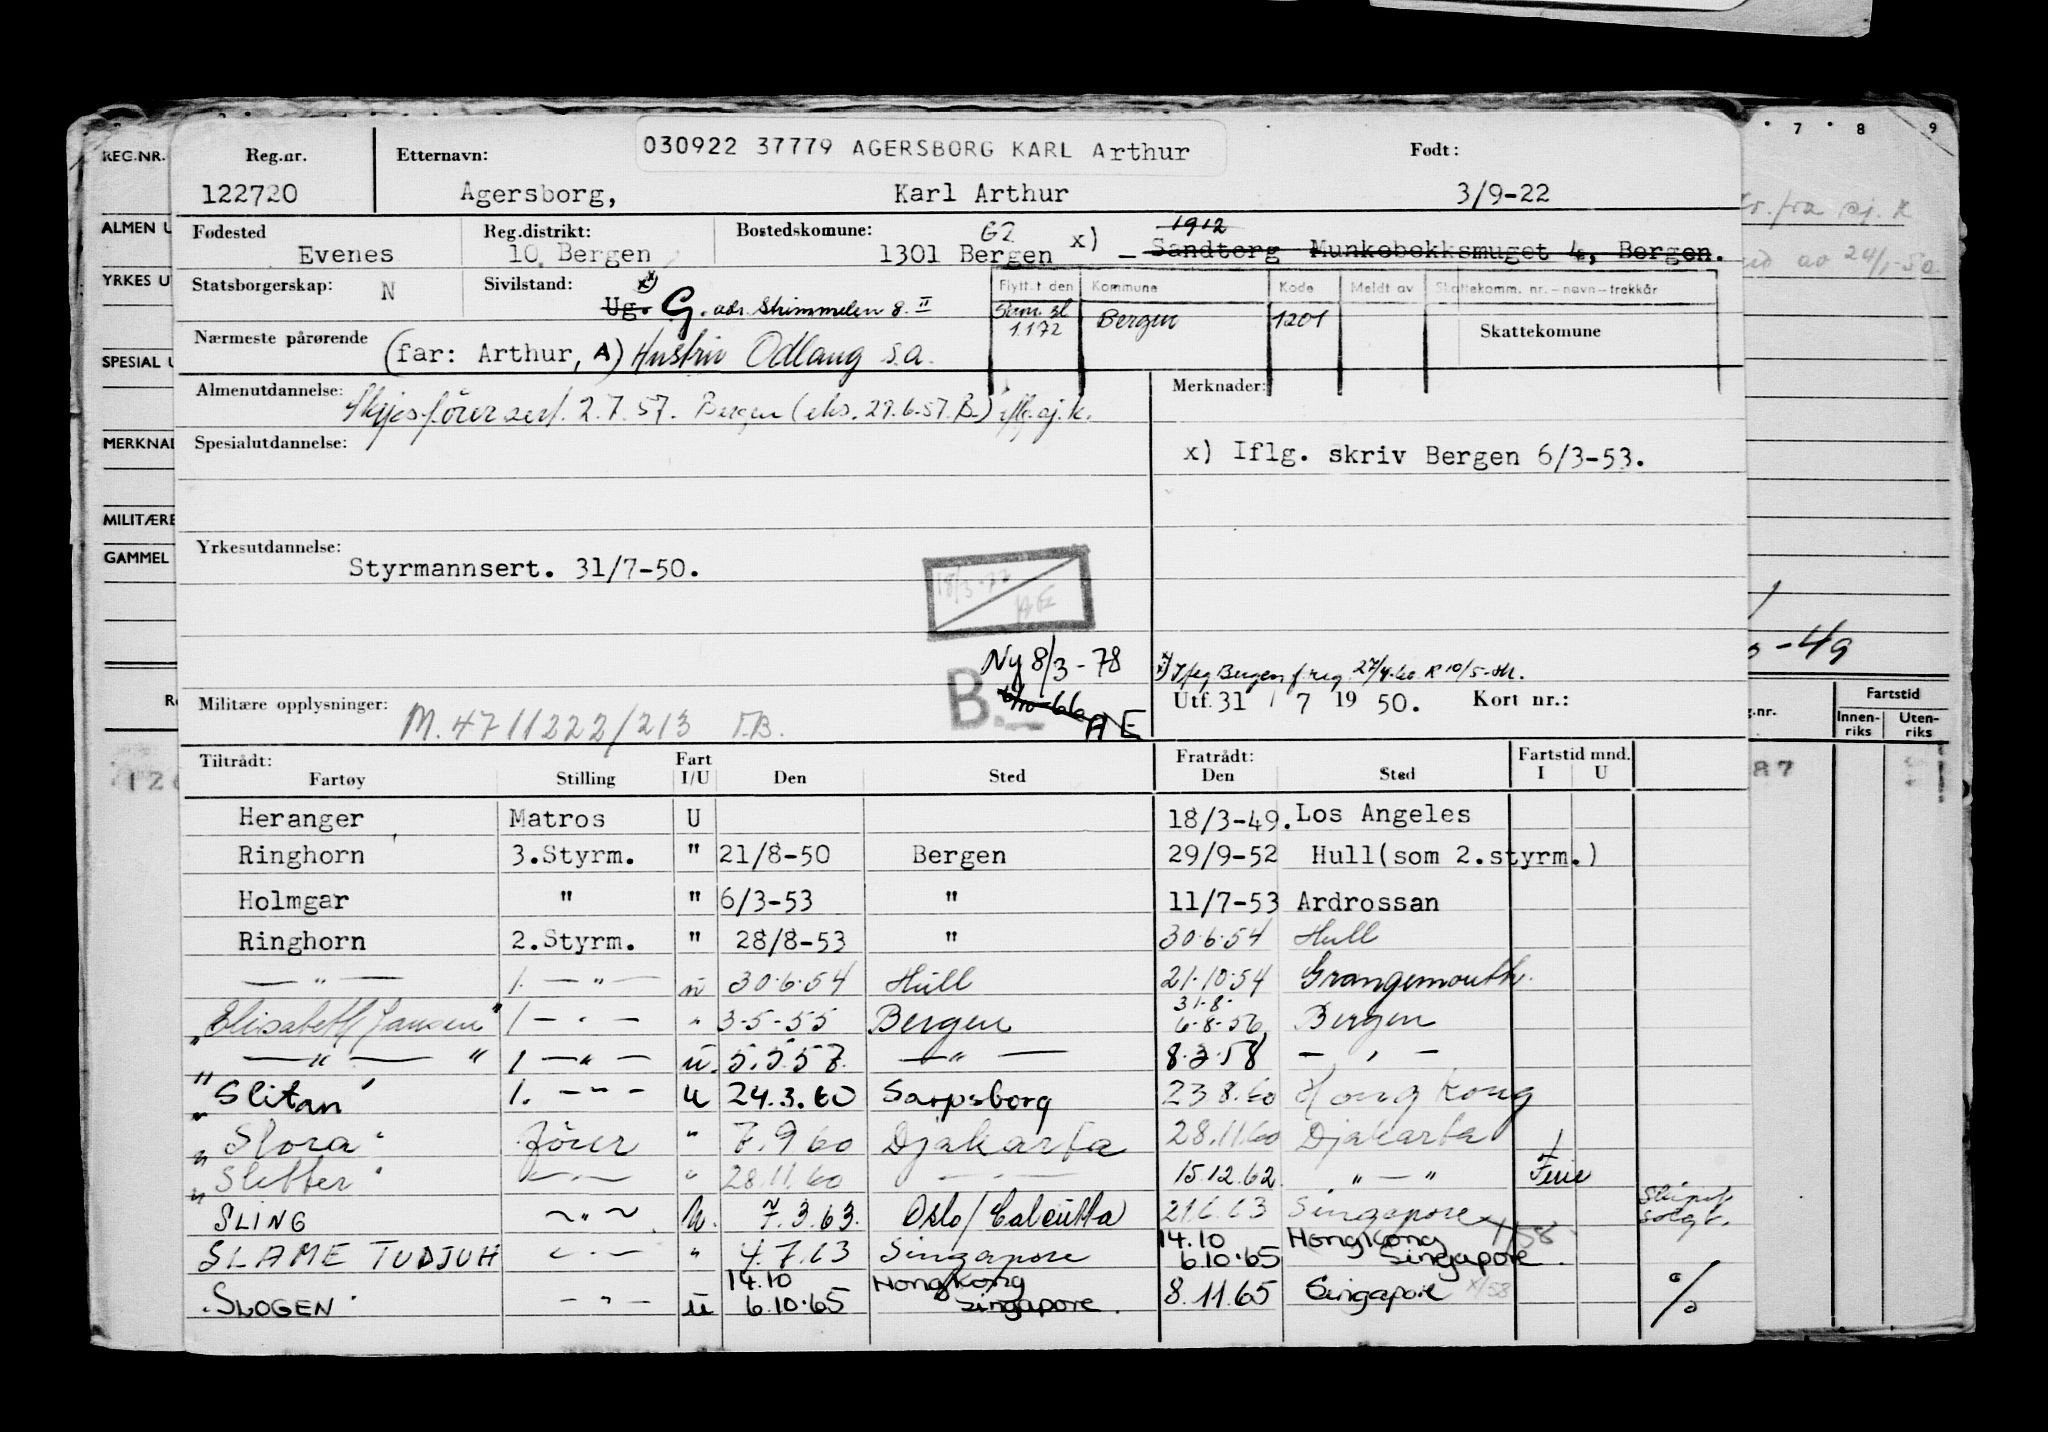 7 • 8 9
REG.NR.
Reg.nr. Etternavn: 030922 37779 AGERSBORG KARL Arthur Født:
122720 Agersborg, Karl Arthur 3/9-22
ALMEN U
Fødested Reg.distrikt: Bostedskomune: 62 x) 1912
Evenes 10. Bergen 1301 Bergen — Sandtorg Munkebekksmuget 4, Bergen.
YRKES U
Statsborgerskap: N Sivilstand: x)
Ug. G. adr. Skimmelen 8. II
Flytt.t den Kommune Kode Meldt av Skattekomm. nr. – navn – trekkår
1.172 Bergen 1201 Skattekomune
Nærmeste pårørende (far: Arthur, A) Hustru Odlaug s.a.
SPECIAL U
Almenutdannelse: Merknader:
Skipsförersert. 2.7.57. Bergen (eks. 29.6.57. B.) iflg. sj.k.
MERKNAD
Spesialutdannelse: x) Iflg. skriv Bergen 6/3-53.
MILITÆRE
GAMMEL
Yrkesutdannelse:
Styrmannsert. 31/7-50.
-49
Ny 8/3-78
Iflg Bergen f. reg 27/4-60 R 10/5-
B.— -66 AE
Utf. 31 / 7 19 50. Kort nr.:
Militære opplysninger: M. 4711222/213 T.B.
Fartstid
Innen- riks Uten- riks
Tiltrådt: Fart Fratrådt: Fartstid mnd.
Fartøy Stilling I/U Den Sted Den Sted I U
Heranger Matros U 18/3-49. Los Angeles
Ringhorn 3.Styrm. " 21/8-50 Bergen 29/9-52 Hull(som 2.styrm.)
Holmgar " " 6/3-53 " 11/7-53 Ardrossan
Ringhorn 2.Styrm. " 28/8-53 " 30.6.54 Hull
— " — 1. — " — u 30.6.54 Hull 21.10.54 Grangemouth.
31.8.
"Elisabeth Jansen" 1 — " — " 3-5-55 Bergen 6-8-56 Bergen
— " — " 1 — " — u. 5.5.57. — " — 8.3.58 — " —
"Slitan" 1. — " — u 24.3.60 Sarpsborg 23.8.60 Hong Kong
"Slora" förer " 7.9.60 Djakarta 28.11.60 Djakarta
"Sletter" — " — " 28.11.60 — " — 15.12.62 " — " Ferie
SLING — " — u. 7.3.63. Oslo/Calcutta 21.6.63 Singapore x/58
SLAME TUDJUH — " — " 4.7.63 Singapore 14.10 Hong Kong
6.10.65 Singapore.
14.10 Hong Kong
"SLOGEN" — " — u 6.10.65 Singapore. 8.11.65 Singapore x/58 %